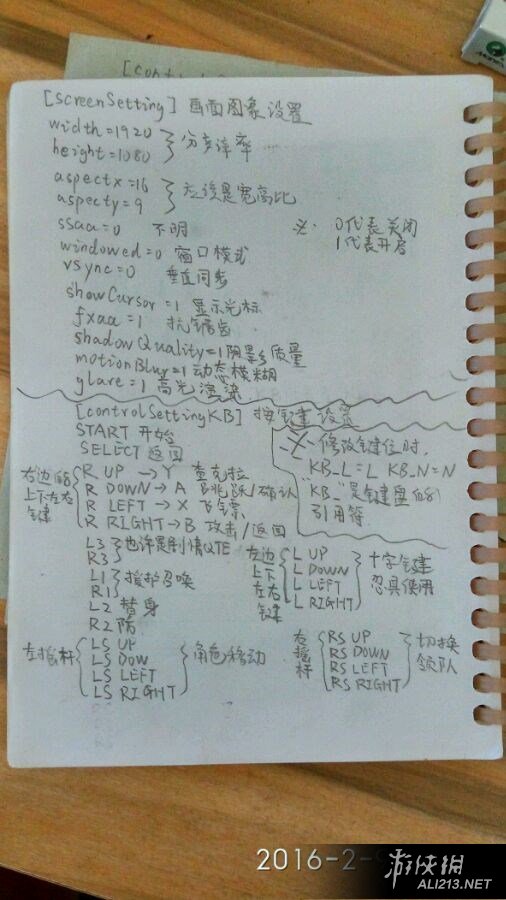 [control
[ScreenSetting] 画面图象设置
width=1920
height=1080 } 分辨率
aspectx=16
aspecty=9 } 应该是宽高比
ssaa=0 不明
※: 0代表关闭
1代表开启
windowed=0 窗口模式
vsync=0 垂直同步
showCursor=1 显示光标
fxaa=1 抗锯齿
shadowQuality=1 阴影质量
motionBlur=1 动态模糊
glare=1 高光渲染
[controlSettingKB] 按键设置
START 开始
SELECT 返回
※ 修改键位时,
KB_L=L KB_N=N
"KB_"是键盘的
引用符
右边的
上下左右
键
R UP → Y 查克拉
R DOWN → A 跳跃/确认
R LEFT → X 飞镖
R RIGHT → B 攻击/返回
L3
R3 } 也许是剧情QTE
L1
R1 } 援护召唤
L2 替身
R2 防
左边
上下
左右
键
L UP
L DOWN
L LEFT
L RIGHT
十字键
忍具使用
左摇杆
LS UP
LS DOW
LS LEFT
LS RIGHT
角色移动
右
摇
杆
RS UP
RS DOWN
RS LEFT
RS RIGHT
切换
领队
2016-2-
游侠网
ALI213.NET